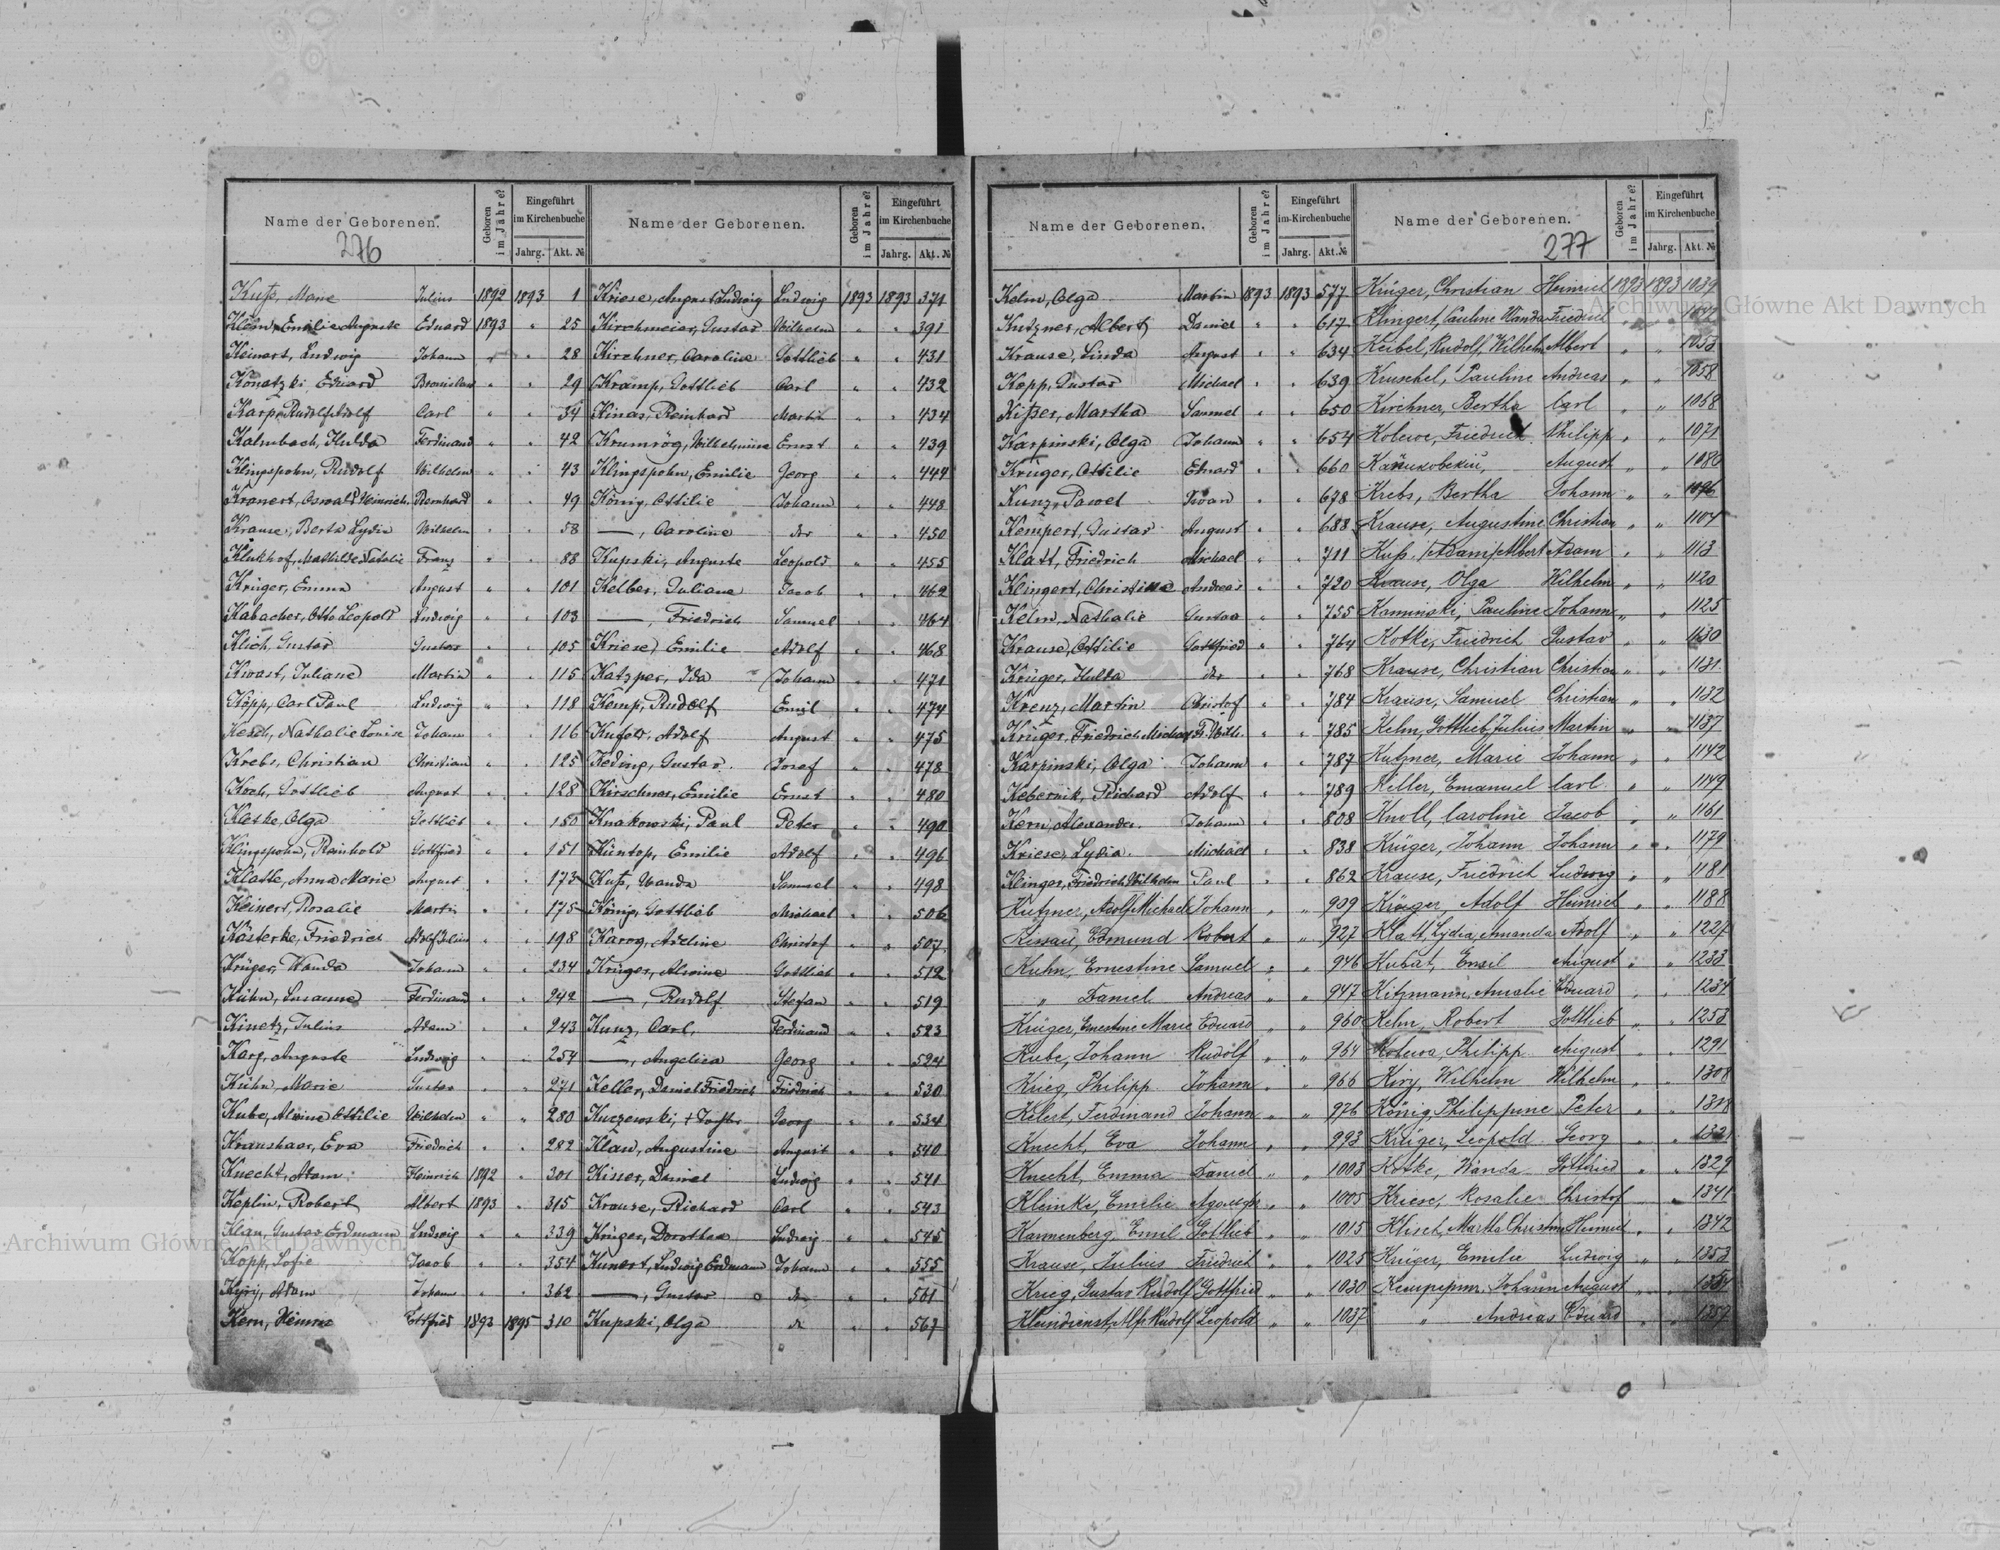 Name der Geborenen. Geboren im Jahre? Eingeführt im Kirchenbuche Jahrg. Akt. №
276
Kuß, Marie Julius 1892 1893 1
Klem, Emilie Auguste Eduard 1893 " 25
Keinert, Ludwig Johann " " 28
Konatzki Eduard Bronislaw " " 29
Karp, Rudolf Adolf Carl " " 34
Kalmbach, Hulda Ferdinand " " 42
Klingspohn, Rudolf Wilhelm " " 43
Kranert, Oswald Heinrich Bernhard " " 49
Krause, Berta Lydia Wilhelm " " 58
Klukhof, Mathilde Natalie Franz " " 88
Krüger, Emma August " " 101
Kabacher, Otto Leopold Ludwig " " 103
Klich, Gustav Gustav " " 105
Kwast, Juliane Martin " " 115
Köpp, Carl Paul Ludwig " " 118
Nathalie Louise Johann " " 116
Krebs, Christian Christian " " 125
Korb, Gottlieb August " " 128
Kleske, Olga Gottlieb " " 150
Klingspohn, Reinhold Gottfried " " 151
Klatte, Anna Marie August " " 173
Keinert, Rosalie Martin " " 175
Kösterke, Friedrich Adolf Julius " " 198
Krüger, Wanda Johann " " 234
Kühn, Susanne Ferdinand " " 242
Kinetz, Julius Adam " " 243
Karp, Auguste Ludwig " " 254
Kühn, Marie Gustav " " 271
Kube, Alwine Ottilie Wilhelm " " 280
Kraushaar, Eva Friedrich " " 282
Knecht, Adam Heinrich 1892 " 301
Keplin, Robert Albert 1893 " 315
Klan, Gustav Erdmann Ludwig " " 339
Köpp, Sofie Jacob " " 354
Adam Johann " " 362
Kern, Gottfried 1893 1895 310
Name der Geborenen. Geboren im Jahre? Eingeführt im Kirchenbuche Jahrg. Akt. №
Kriese, August Ludwig Ludwig 1893 1893 374
Kirchmeier, Gustav Wilhelm " " 391
Kirchner, Caroline Gottlieb " " 431
Kramp, Gottlieb Carl " " 432
Kinas, Reinhard Martin " " 434
Krumrög, Wilhelmine Ernst " " 439
Klingspohn, Emilie Georg " " 444
König, Ottilie Johann " " 448
—, Caroline " " 450
Kupski, Auguste Leopold " " 455
Kelber, Juliane Jacob " " 462
—, Friedrich Samuel " " 464
Kriese, Emilie Adolf " " 468
Katzper, Ida Johann " " 471
Kemp, Rudolf Emil " " 474
Adolf August " " 475
Keding, Gustav Josef " " 478
Kirschner, Emilie Ernst " " 480
Knakowski, Paul Peter " " 490
Küntop, Emilie Adolf " " 496
Kuß, Wanda Samuel " " 498
König, Gottlieb Michael " " 506
Karog, Adeline Christof " " 507
Krüger, Alwine Gottlieb " " 512
—, Rudolf Stefan " " 519
Kunz, Carl Ferdinand " " 523
—, Angelica Georg " " 524
Keller, Daniel Friedrich Friedrich " " 530
Kuczewski, + Tochter Georg " " 534
Klan, Augustine August " " 540
Kisser, Daniel Ludwig " " 541
Krause, Richard Carl " " 543
Krüger, Dorothea Ludwig " " 545
Kunert, Ludwig Erdmann Johann " " 555
—, Gustav " " 561
Kupski, Olga " " 567
Name der Geborenen. Geboren im Jahre? Eingeführt im Kirchenbuche Jahrg. Akt. №
Kelm, Olga Martin 1893 1893 577
Kutzner, Albert Daniel " " 617
Krause, Linda August " " 634
Kopp, Gustav Michael " " 639
Kißer, Martha Samuel " " 650
Karpinski, Olga Johann " " 654
Krüger, Ottilie Eduard " " 660
Kunz, Pawel Iwan " " 678
Kempert, Gustav August " " 688
Klatt, Friedrich Michael " " 711
Klingert, Christine Andreas " " 720
Kelm, Nathalie Gustav " " 755
Krause, Ottilie Gottfried " " 764
Krüger, Hulda " " 768
Krenz, Martin Christof " " 784
Krüger, Friedrich Michael Fr. Wilh. " " 785
Karpinski, Olga Johann " " 787
Kebernik, Richard Adolf " " 789
Kern, Alexander Johann " " 808
Kriese, Lydia Michael " " 838
Klinger, Friedrich Wilhelm Paul " " 862
Kutzner, Adolf Michael Johann " " 909
Edmund Robert " " 927
Kuhn, Ernestine Samuel " " 946
" Daniel Andreas " " 947
Krüger, Ernestine Marie Eduard " " 960
Kube, Johann Rudolf " " 964
Krieg, Philipp Johann " " 966
Ferdinand Johann " " 976
Knecht, Eva Johann " " 993
Knecht, Emma Daniel " " 1003
Kleinke, Emilie " " 1005
Kannenberg, Emil Gottlieb " " 1015
Krause, Julius Friedrich " " 1025
Krieg, Gustav Rudolf Gottfried " " 1030
Kleindienst, Alf Rudolf Leopold " " 1037
Name der Geborenen. Geboren im Jahre? Eingeführt im Kirchenbuche Jahrg. Akt. №
277
Krüger, Christian Heinrich 1893 1893 1039
Klingert, Pauline Wanda Friedrich " "
Keibel, Rudolf Wilhelm Albert " " 1053
Kruschel, Pauline Andreas " " 1058
Kirchner, Bertha Carl " " 1068
Friedrich Philipp " " 1071
August " " 1080
Krebs, Bertha Johann " " 1096
Krause, Augustine Christian " " 1104
Kuß, (Adam) Albert Adam " " 1113
Krause, Olga Wilhelm " " 1120
Kaminski, Pauline Johann " " 1125
Kotke, Friedrich Gustav " " 1130
Krause, Christian Christian " " 1131
Krause, Samuel Christian " " 1132
Kelm, Gottlieb Julius Martin " " 1137
Kutzner, Marie Johann " " 1142
Keller, Emanuel Carl " " 1149
Knoll, Caroline Jacob " " 1161
Krüger, Johann Johann " " 1179
Krause, Friedrich Ludwig " " 1181
Krüger, Adolf Heinrich " " 1188
Klatt, Lydia Amanda Adolf " " 1227
Kubat, Emil August " " 1233
Kitzmann, Amalie Eduard " " 1234
Kelm, Robert Gottlieb " " 1253
Philipp August " " 1291
Wilhelm Wilhelm " " 1308
König, Philippine Peter " " 1318
Krüger, Leopold Georg " " 1321
Kotke, Wanda Gottfried " " 1329
Kriese, Rosalie Christof " 1341
Klisch, Martha Christine Heinrich " " 1342
Krüger, Emilie Ludwig " " 1353
Johann August " "
" Andreas Eduard " "
Archiwum Główne Akt Dawnych
Archiwum Główne Akt Dawnych